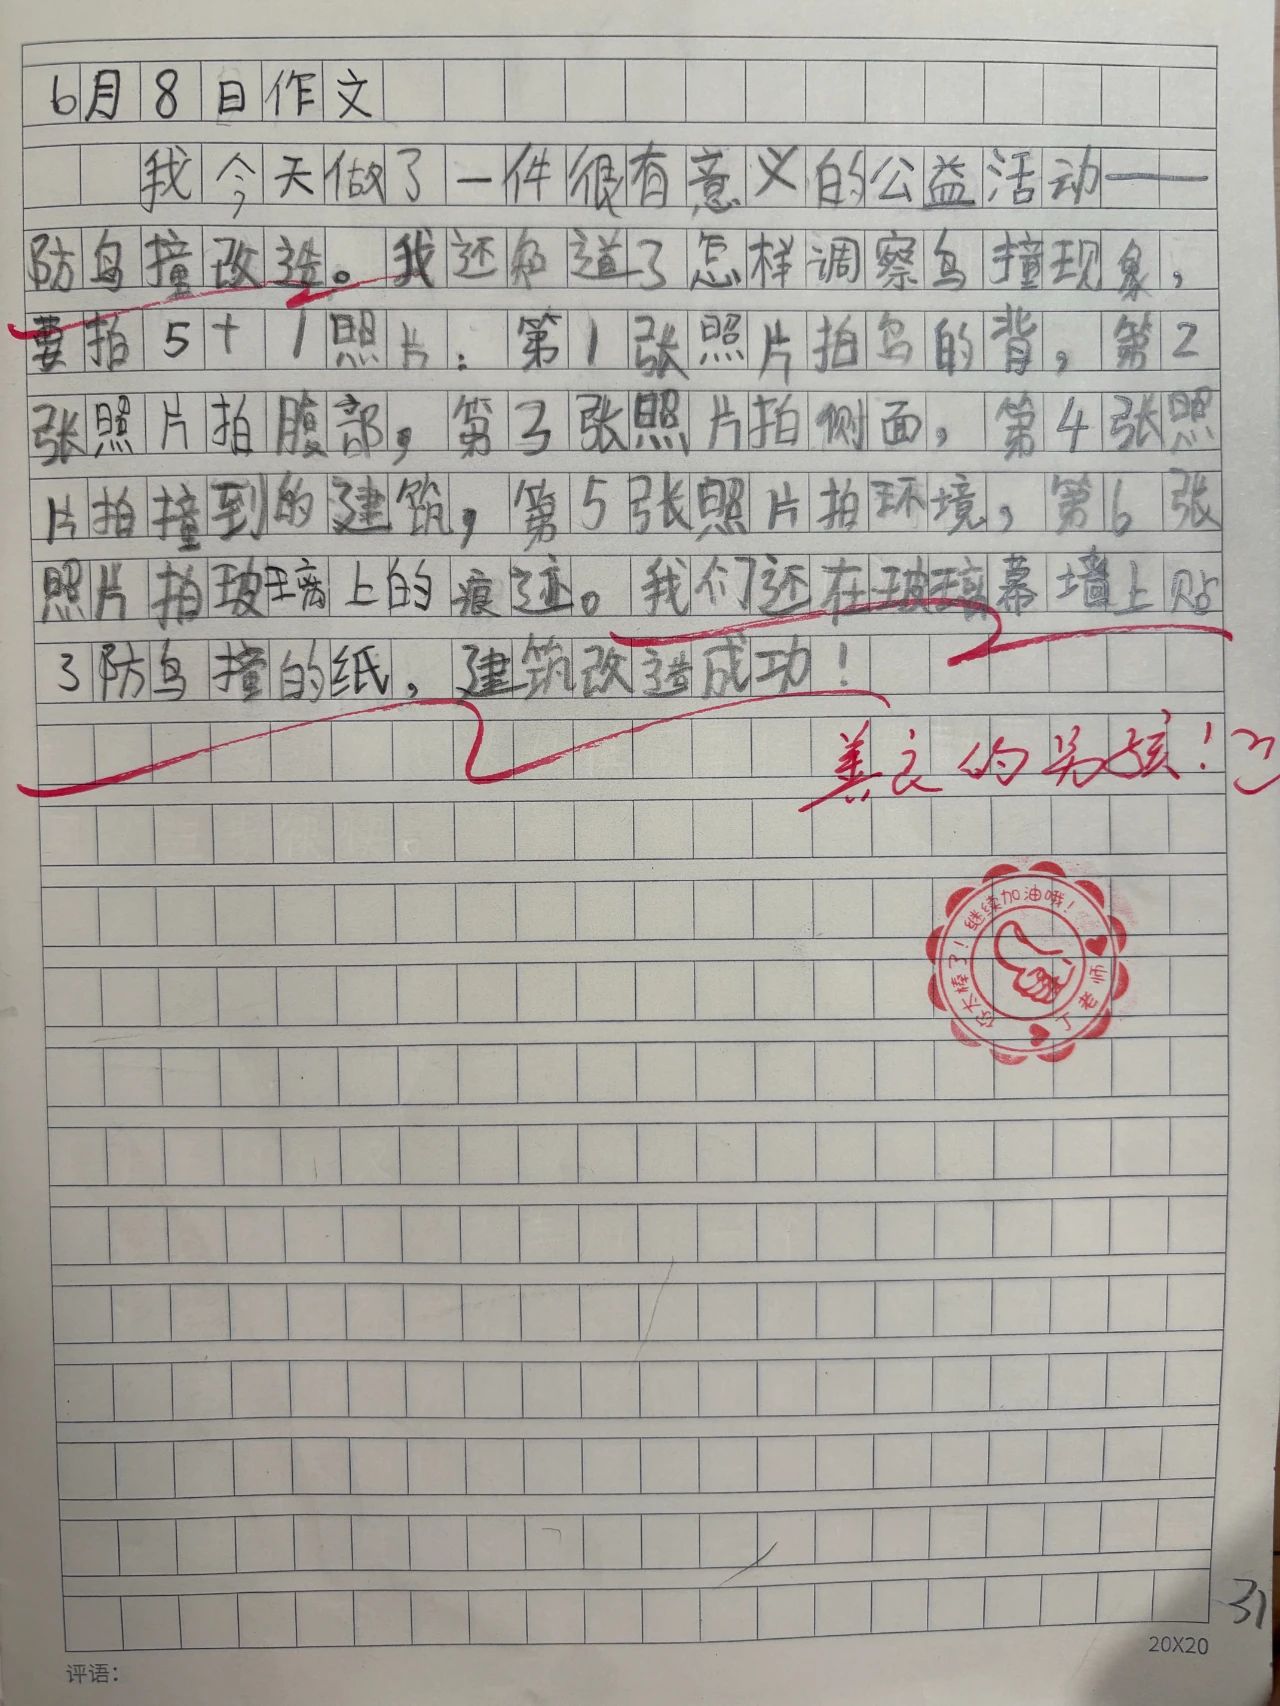 6月8日作文
我今天做了一件很有意义的公益活动——
防鸟撞改造。我还知道了怎样调察鸟撞现象，
要拍5+1照片：第1张照片拍鸟的背，第2
张照片拍腹部，第3张照片拍侧面，第4张照
片拍撞到的建筑，第5张照片拍环境，第6张
照片拍玻璃上的痕迹。我们还在玻璃幕墙上贴
了防鸟撞的纸，建筑改造成功！
善良的男孩！
你太棒了！继续加油哦！
丁老师
31
20X20
评语：